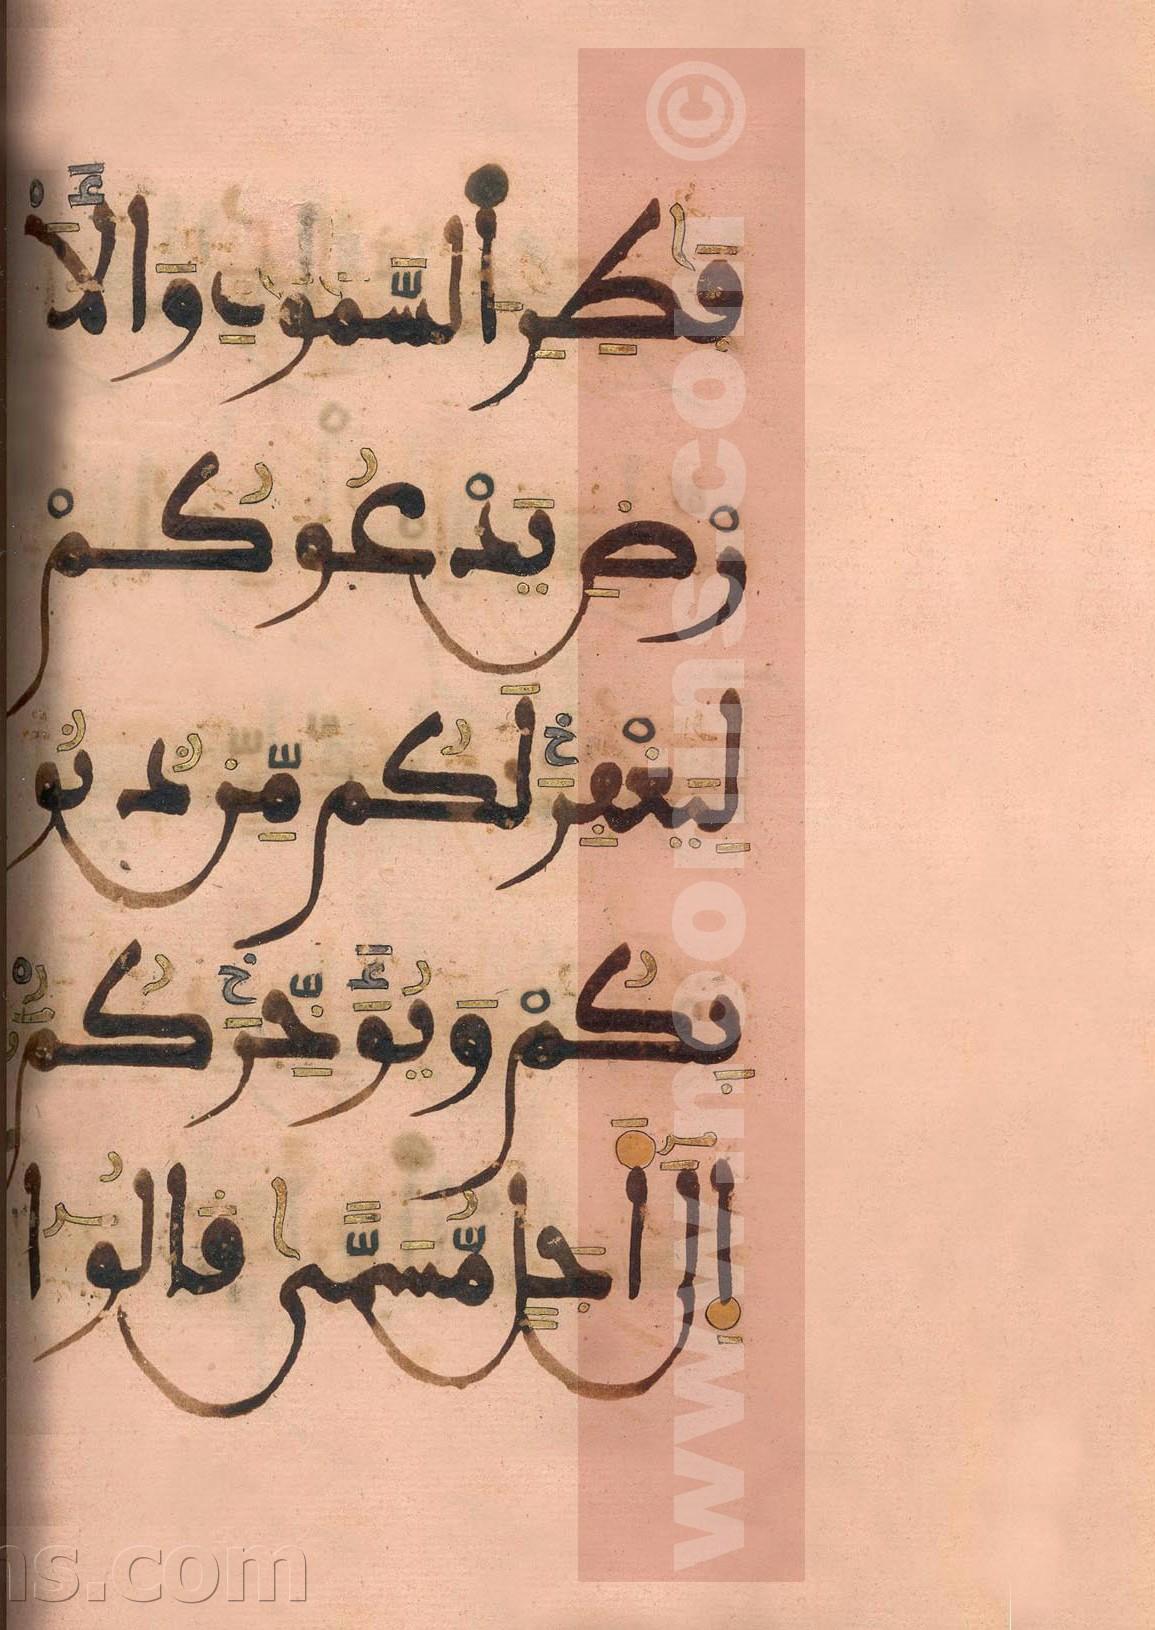 فَٰطِرِ اِ۬لسَّمَٰوَٰتِ وَالَارْ
رْضِ يَدْعُوكُمْ
لِيَغْفِرَ لَكُم مِّن ذُنُو
بِكُمْ وَيُؤَخِّرَكُمُۥٓ
إِلَىٰٓ أَجَلٖ مُّسَمّىٗ قَالُوٓا
www.moslins.com ©
ns.com